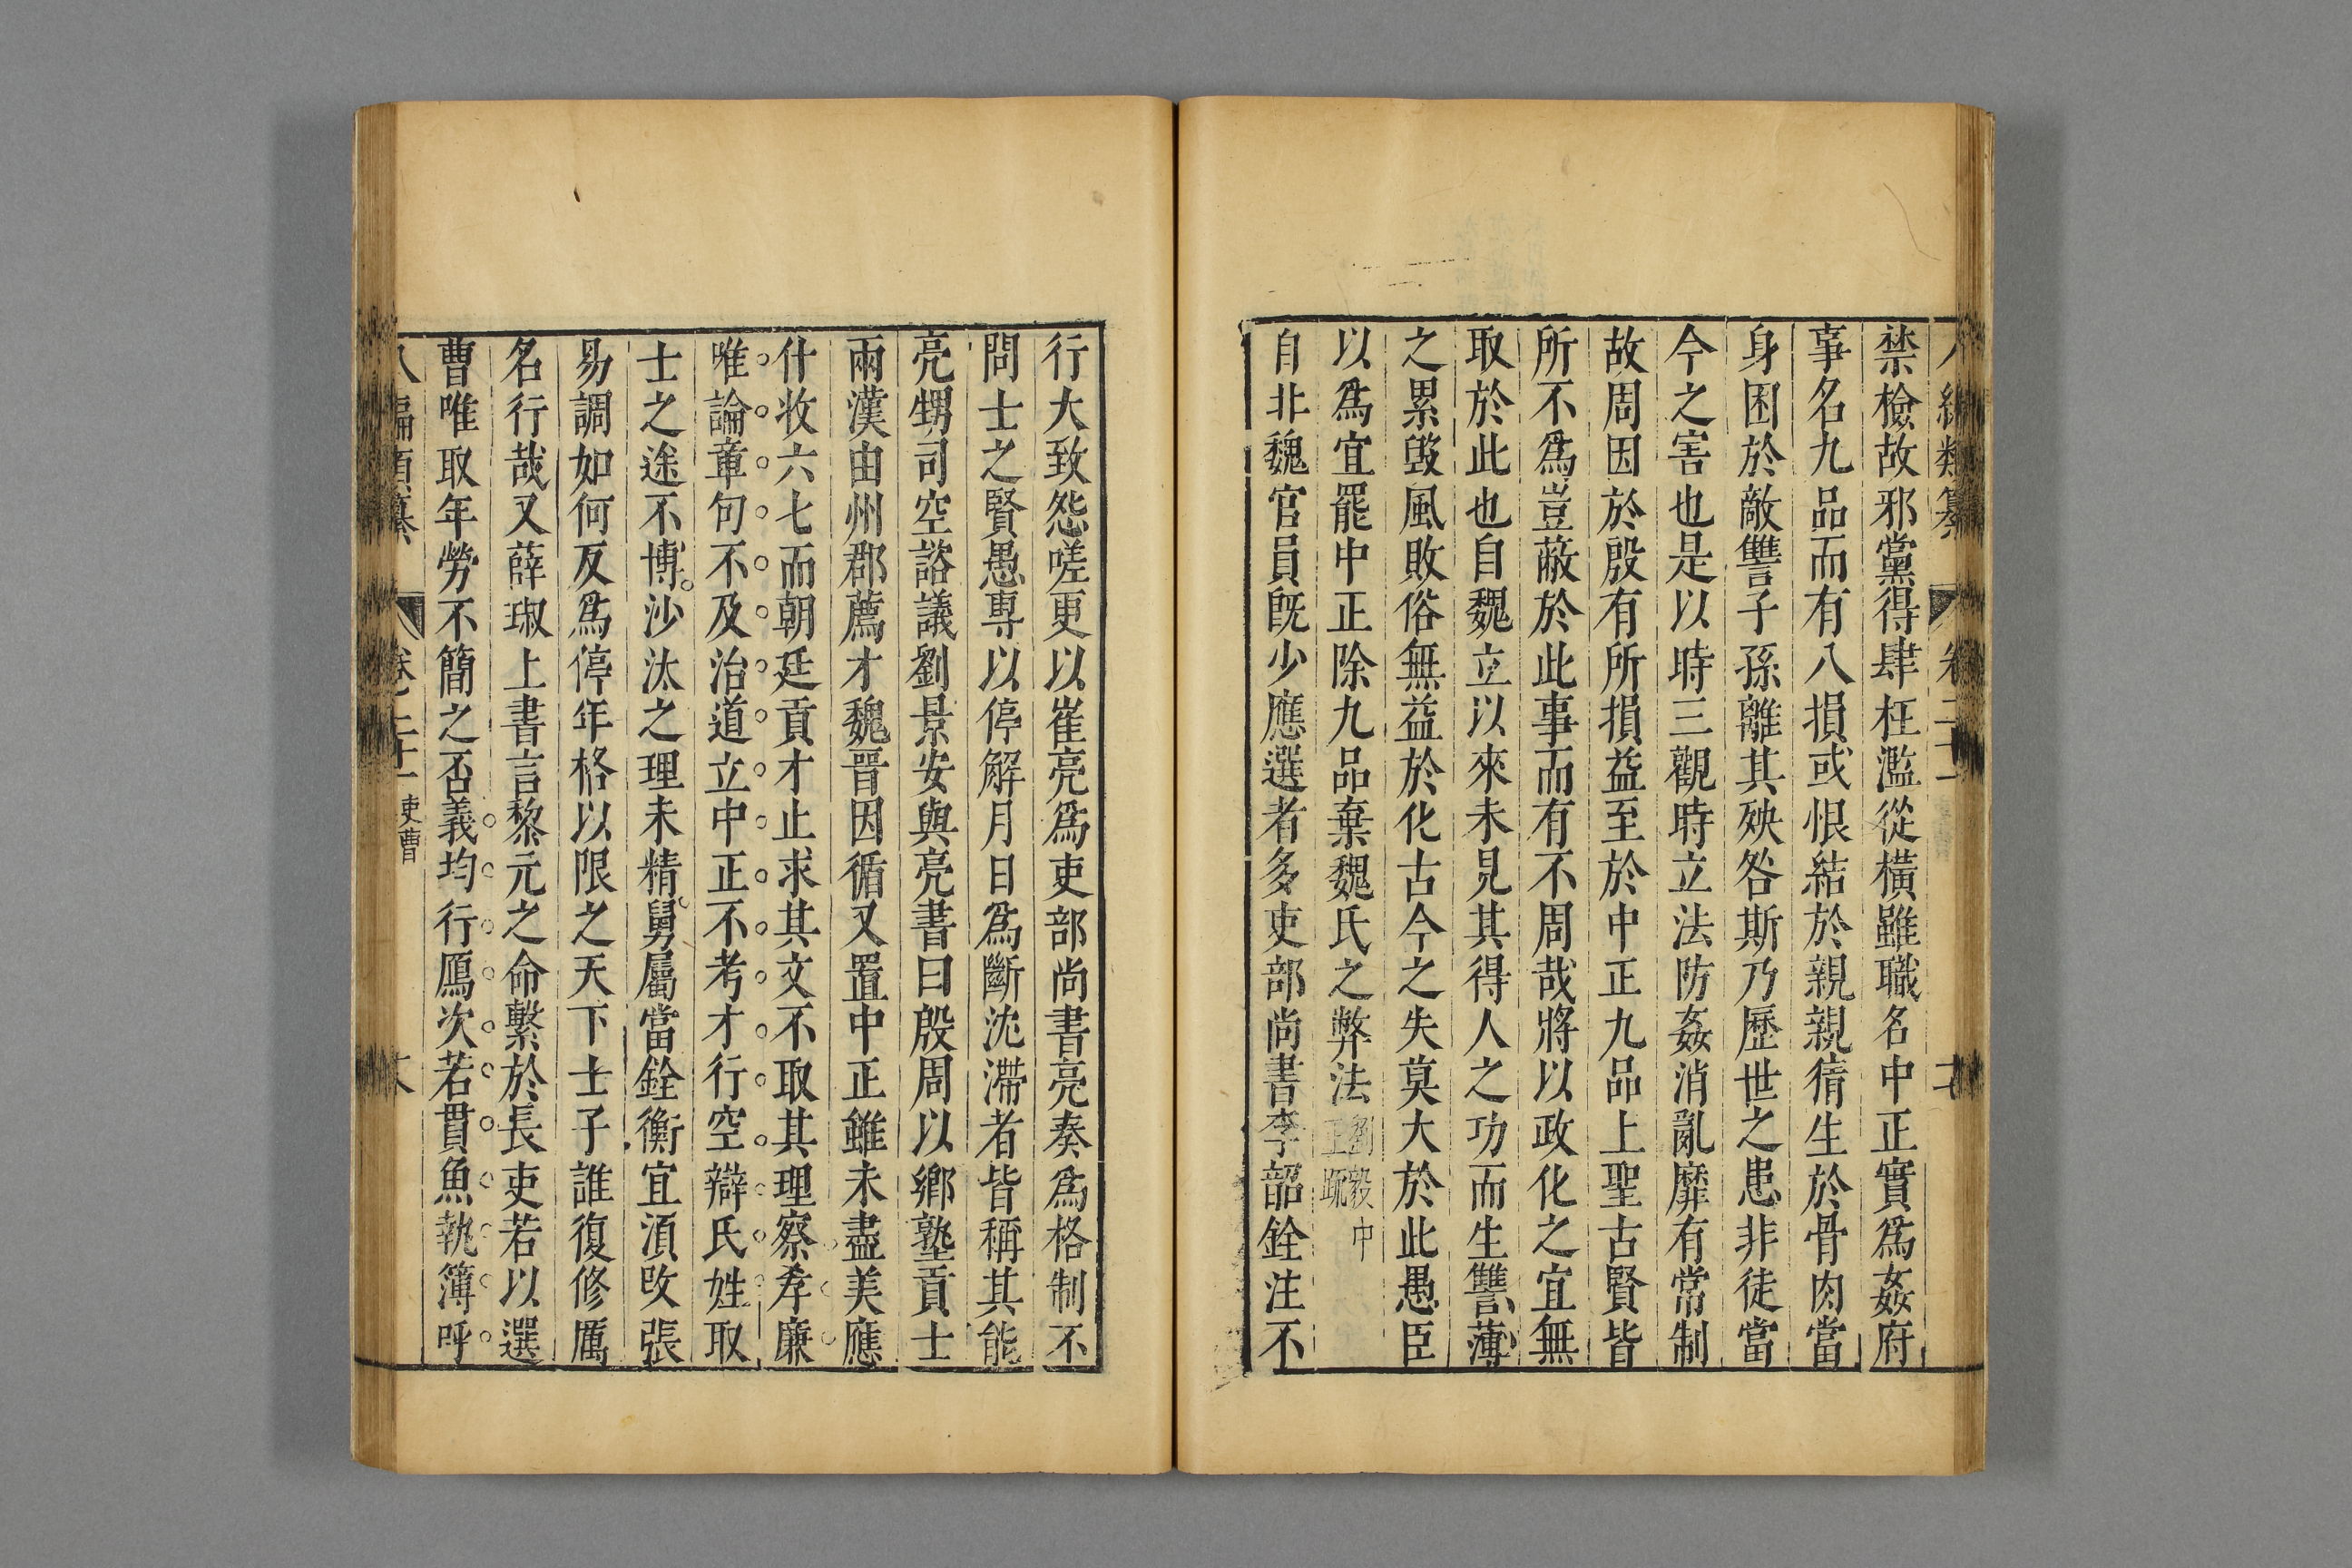 禁檢故邪黨得肆枉濫從橫雖職名中正實爲姦府
事名九品而有八損或恨結於親親猜生於骨肉當
身困於敵讐子孫離其殃咎斯乃歷世之患非徒當
今之害也是以時三觀時立法防姦消亂靡有常制
故周因於殷有所損益至於中正九品上聖古賢皆
所不爲豈蔽於此事而有不周哉將以政化之宜無
取於此也自魏立以來未見其得人之功而生讐薄
之累毀風敗俗無益於化古今之失莫大於此愚臣
以爲宜罷中正除九品棄魏氏之弊法劉毅中正疏
自非魏官員旣少應選者多吏部尚書李韶銓注不
行大致怨嗟更以崔亮爲吏部尚書亮奏爲格制不
問士之賢愚專以停解月日爲斷沈滯者皆稱其能
亮甥司空諮議劉景安與亮書曰殷周以鄉塾貢士
兩漢由州郡薦才魏晉因循又置中正雖未盡美應
什收六七而朝廷貢才止求其文不取其理察孝廉
唯論章句不及治道立中正不考才行空辯氏姓取
士之途不博沙汰之理未精舅屬當銓衡宜須改張
易調如何反爲停年格以限之天下士子誰復修厲
名行哉又薛琡上書言黎元之命繫於長吏若以選
曹唯取年勞不簡之否義均行鴈次若貫魚執簿呼
吏曹